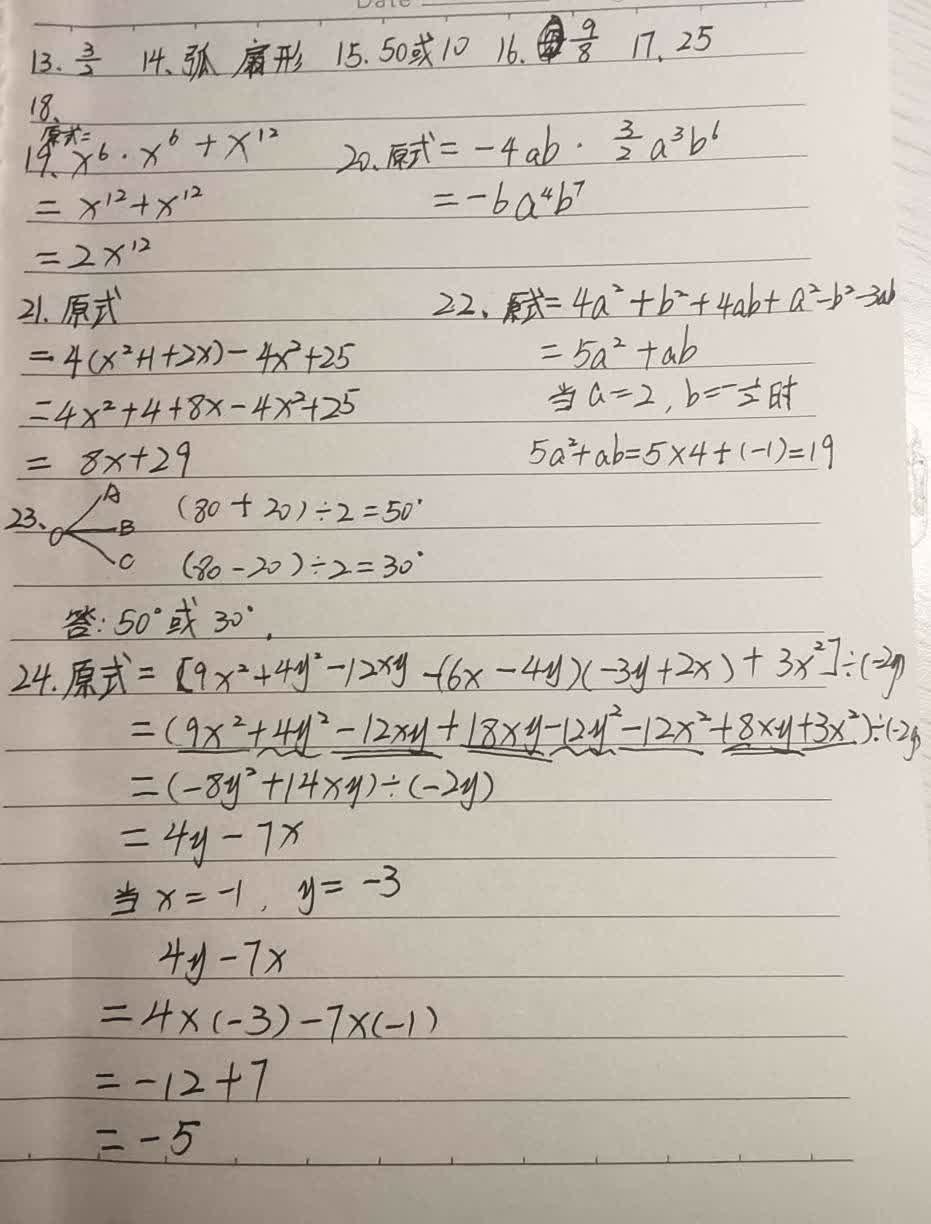 Date
13. 3/2 14、弧 扇形 15. 50或10 16. 9/8 17. 25
18、
19、原式= x⁶·x⁶+x¹²
= x¹²+x¹²
= 2x¹²
20、原式= -4ab · 3/2 a³b⁶
= -6a⁴b⁷
21. 原式
= 4(x²+1+2x)-4x²+25
= 4x²+4+8x-4x²+25
= 8x+29
22、原式= 4a²+b²+4ab+a²-b²-3ab
= 5a²+ab
当a=2, b=-1/2时
5a²+ab=5×4+(-1)=19
23、 O A B C
(80+20)÷2=50°
(80-20)÷2=30°
答: 50°或30°.
24. 原式= [9x²+4y²-12xy-(6x-4y)(-3y+2x)+3x²]÷(-2y)
= (9x²+4y²-12xy+18xy-12y²-12x²+8xy+3x²)÷(-2y)
= (-8y²+14xy)÷(-2y)
= 4y-7x
当 x=-1, y=-3
4y-7x
= 4×(-3)-7×(-1)
= -12+7
= -5